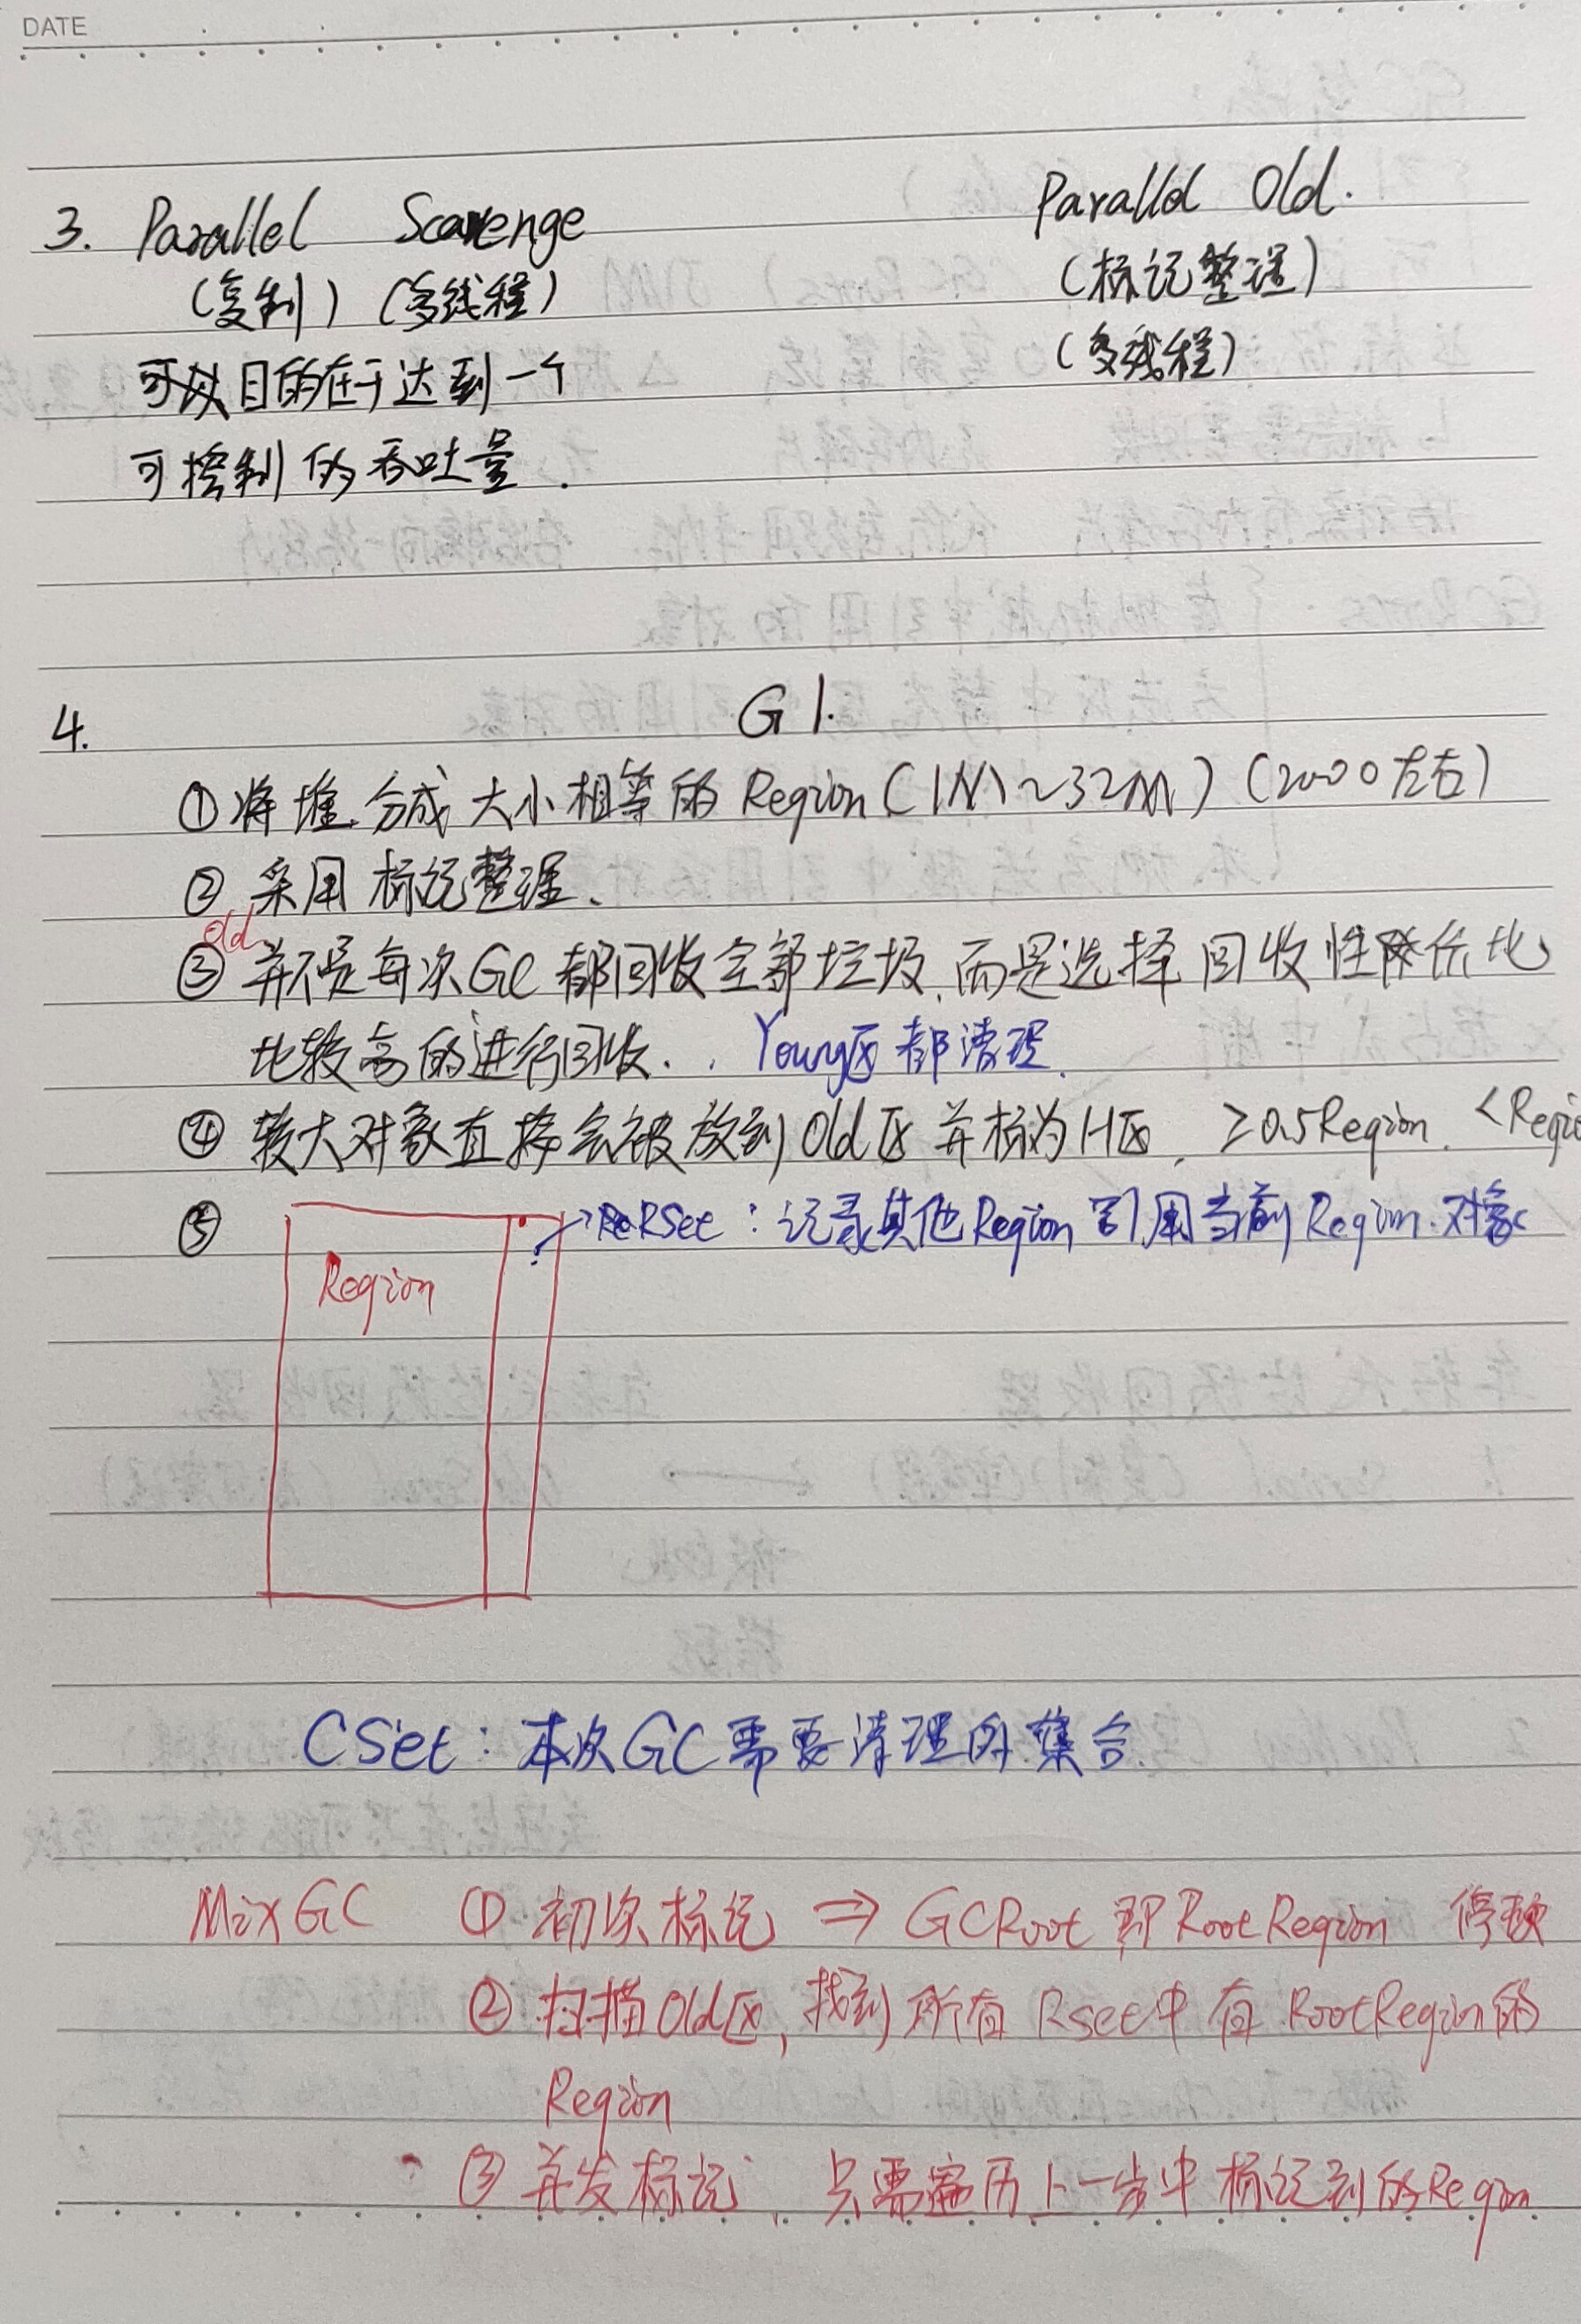 DATE
3. Parallel Scavenge
Parallel Old.
(复制) (多线程)
(标记整理)
(多线程)
可以目的在于达到一个
可控制的吞吐量.
4. G1.
①将堆分成大小相等的Region(1M~32M) (2000左右)
②采用标记整理.
old
③并不是每次GC都回收全部垃圾,而是选择回收性价比
比较高的进行回收.. Young区都清理.
④较大对象直接会被放到Old区并标为H区, ≥0.5Region. <Regio
⑤
RSet:记录其他Region引用当前Region.对象
Region
CSet:本次GC需要清理的集合.
MixGC ①初次标记 ⇒ GCRoot 即RootRegion 停顿
②扫描Old区,找到所有Rset中有RootRegion的
Region
③并发标记, 只需遍历上一步中标记到的Region